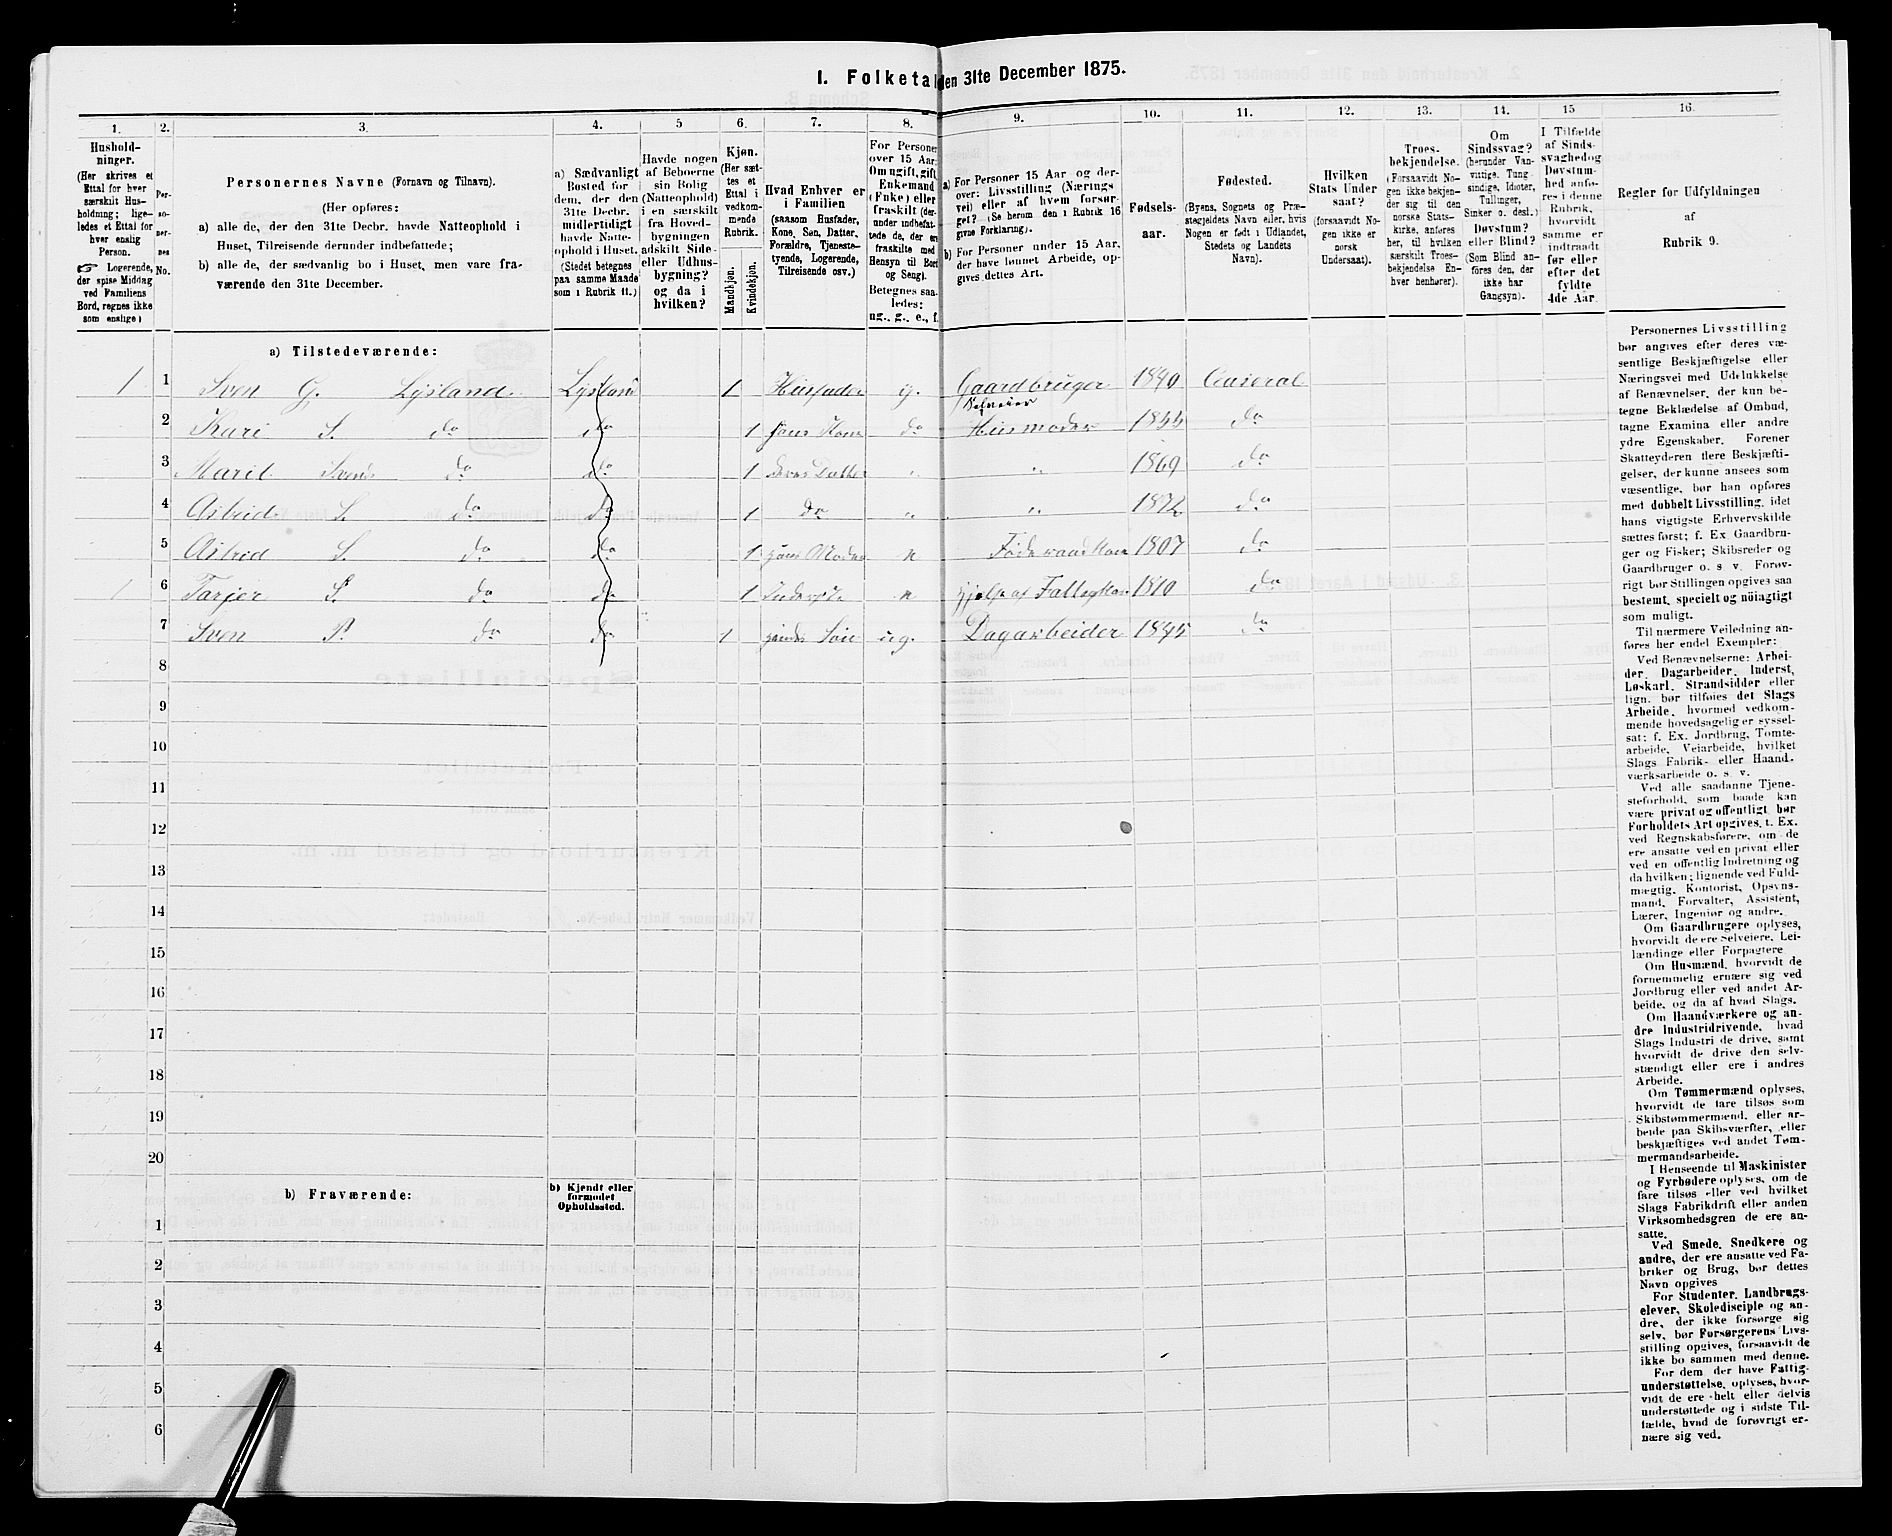 I. Folketal den 31te December 1875.
1. 2. 3. 4. 5 6. 7. 8. 9. 10. 11. 12. 13. 14. 15 16.
Hushold-
ninger.
(Her skrives et
Ettal for hver
særskilt Hus-
holdning; lige-
ledes et Ettal for
hver enslig
Person.
☞ Logerende,
der spise Middag
ved Familiens
Bord, regnes ikke
som enslige)
Per-
so-
ner-
nes
No.
Personernes Navne (Fornavn og Tilnavn).
(Her opføres:
a) alle de, der den 31te Decbr. havde Natteophold i
Huset, Tilreisende derunder indbefattede;
b) alle de, der sædvanlig bo i Huset, men vare fra-
værende den 31te December.
a) Sædvanligt
Bosted for
dem, der den
31te Decbr.
midlertidigt
havde Natte-
ophold i Huset.
(Stedet betegnes
paa samme Maade
som i Rubrik 11.)
Havde nogen
af Beboerne
sin Bolig
(Natteophold)
i en særskilt
fra Hoved-
bygningen
adskilt Side-
eller Udhus-
bygning?
og da i
hvilken?
Kjøn.
(Her sæt-
tes et
Ettal i
vedkom-
mende
Rubrik.
Mandkjøn.
Kvindekjøn.
Hvad Enhver er
i Familien
(saasom Husfader,
Kone, Søn, Datter,
Forældre, Tjeneste-
tyende, Logerende,
Tilreisende osv.)
For Personer
over 15 Aar:
Om ugift, gift,
Enkemand
(Enke) eller
fraskilt (der-
under indbefat-
tede de, der ere
fraskilte med
Hensyn til Bord
og Seng).
Betegnes saa-
ledes:
ug., g., e., f.
a) For Personer 15 Aar og der-
over: Livsstilling (Nærings-
vei) eller af hvem forsør-
get? (Se herom den i Rubrik 16
givne Forklaring).
b) For Personer under 15 Aar,
der have lønnet Arbeide, op-
gives dettes Art.
Fødsels-
aar.
Fødested.
(Byens, Sognets og Præ-
stegjeldets Navn eller, hvis
Nogen er født i Udlandet,
Stedets og Landets
Navn).
Hvilken
Stats Under
saat?
(forsaavidt No-
gen ikke er
norsk
Undersaat).
Troes-
bekjendelse.
(Forsaavidt No-
gen ikke bekjen-
der sig til den
norske Stats-
kirke, anføres
her, til hvilken
særskilt Troes-
bekjendelse En-
hver henhører).
Om
Sindssvag?
(herunder Van-
vittige, Tung-
sindige, Idioter,
Tullinger,
Sinker o. desl.)
Døvstum?
eller Blind?
(Som Blind an-
føres den, der
ikke har
Gangsyn).
I Tilfælde
af Sinds-
svaghed og
Døvstum-
hed anfø-
res i denne
Rubrik,
hvorvidt
samme er
indtraadt
før eller
efter det
fyldte
4de Aar.
Regler for Udfyldningen
af
Rubrik 9.
a) Tilstedeværende:
1 1 Sven G. Lysland Lysland 1 Husfader g. Gaardbruger 1840 Aaseral
Selveier
2 Kari S. do do 1 Hans Kone do Husmoder 1844 do
3 Marit Svens do do 1 deres Datter " " 1869 do
4 Astrid S. do do 1 do " " 1872 do
5 Astrid S. do do 1 hans Moder Føderaadskone 1807 do
1 6 Tarjer S. do do 1 Inderste hjelp af Fattigkas 1810 do
7 Sven P. do do 1 hendes Søn ug. Dagarbeider 1845 do
8
9
10
11
12
13
14
15
16
17
18
19
20
b) Fraværende:
b) Kjendt eller
formodet
Opholdssted.
1
2
3
4
5
6
Personernes Livsstilling
bør angives efter deres væ-
sentlige Beskjæftigelse eller
Næringsvei med Udelukkelse
af Benævnelser, der kun be-
tegne Beklædelse af Ombud,
tagne Examina eller andre
ydre Egenskaber. Forener
Skatteyderen flere Beskjæfti-
gelser, der kunne ansees som
væsentlige, bør han opføres
med dobbelt Livsstilling, idet
hans vigtigste Erhvervskilde
sættes først; f. Ex Gaardbru-
ger og Fisker; Skibsreder og
Gaardbruger o. s. v. Forøv-
rigt bør Stillingen opgives saa
bestemt, specielt og nøiagtigt
som muligt.
Til nærmere Veiledning an-
føres her endel Exempler:
Ved Benævnelserne: Arbei-
der, Dagarbeider, Inderst,
Løskarl, Strandsidder eller
lign. bør tilføies det Slags
Arbeide, hvormed vedkom-
mende hovedsagelig er syssel-
sat; f. Ex. Jordbrug, Tomte-
arbeide, Veiarbeide, hvilket
Slags Fabrik- eller Haand-
værksarbeide o. s. v.
Ved alle saadanne Tjene-
steforhold, som baade kan
være privat og offentligt, bør
Forholdets Art opgives, t. Ex.
ved Regnskabsførere, om de
ere ansatte ved en privat eller
ved en offentlig Indretning og
da hvilken; lignende ved Fuld-
mægtig, Kontorist, Opsyns-
mand, Forvalter, Assistent,
Lærer, Ingeniør og andre.
Om Gaardbrugere oplyses,
hvorvidt de ere Selveiere, Lei-
lændinge eller Forpagtere
Om Husmænd, hvorvidt de
fornemmelig ernære sig ved
Jordbrug eller ved andet Ar-
beide, og da af hvad Slags.
Om Haandværkere og an-
dre Industridrivende, hvad
Slags Industri de drive, samt
hvorvidt de drive den selv-
stændigt eller ere i andres
Arbeide.
Om Tømmermænd oplyses,
hvorvidt de fare tilsøs som
Skibstømmermænd, eller ar-
beide paa Skibsværfter, eller
beskjæftiges ved andet Tøm-
mermandsarbeide.
I Henseende til Maskinister
og Fyrbødere oplyses, om de
fare tilsøs eller ved hvilket
Slags Fabrikdrift eller anden
Virksomhedsgren de ere an-
satte.
Ved Smede, Snedkere og
andre, der ere ansatte ved Fa-
briker og Brug, bør dettes
Navn opgives
For Studenter, Landbrugs-
elever, Skoledisciple og an-
dre, der ikke forsørge sig
selv, bør Forsørgerens Livs-
stilling opgives, forsaavidt de
ikke bo sammen med denne.
For dem, der have Fattig-
understøttelse, oplyses, hvor-
vidt de ere helt eller delvis
understøttede og i sidste Til-
fælde, hvad de forøvrigt er-
nære sig ved.